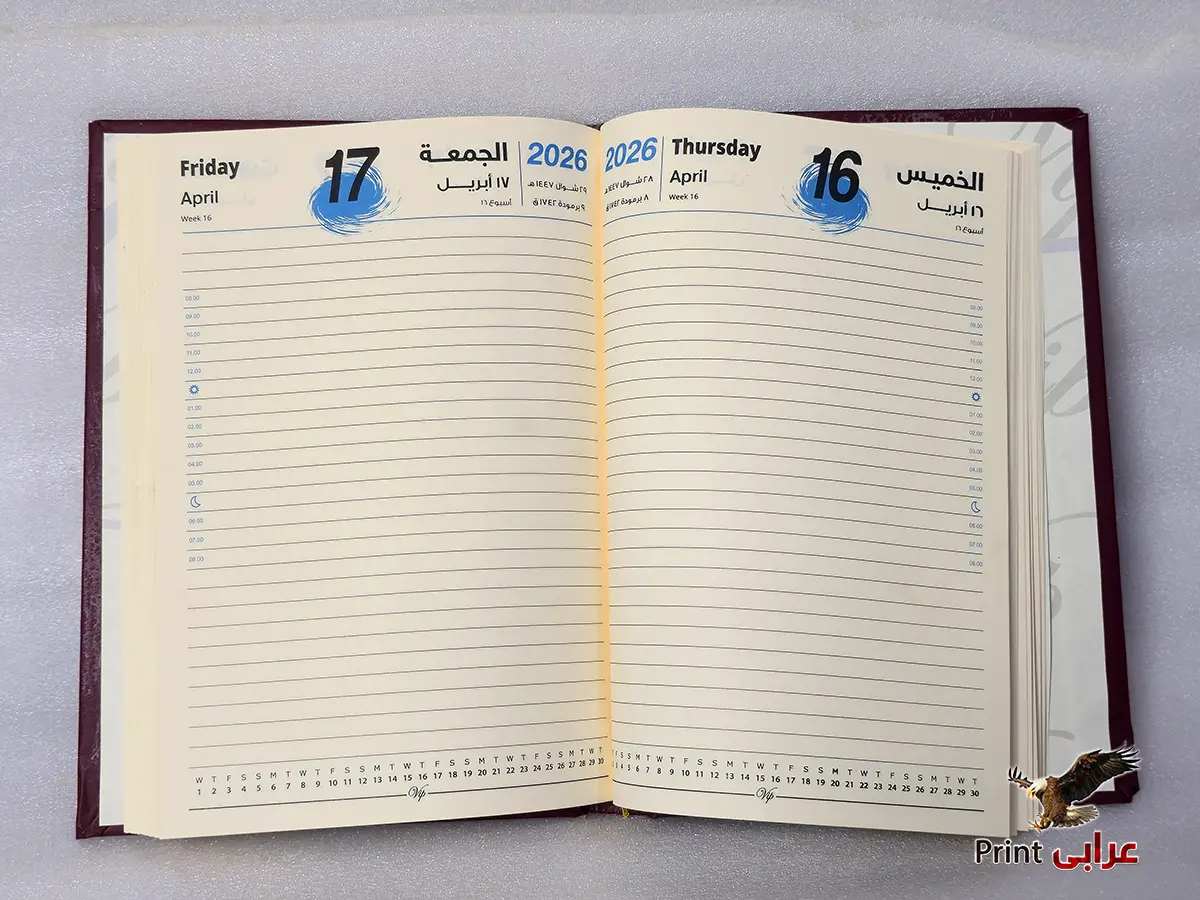 2026
٢٨ شوال ١٤٤٧هـ
٨ برمودة ١٧٤٢ ق
Thursday
April
Week 16
16
الخميس
١٦ أبريل
أسبوع ١٦
08.00
09.00
10.00
11.00
12.00
01.00
02.00
03.00
04.00
05.00
06.00
07.00
08.00
F S S M T W T F S S M T W T F S S M T W T F S S M T W T
3 4 5 6 7 8 9 10 11 12 13 14 15 16 17 18 19 20 21 22 23 24 25 26 27 28 29 30
Vip
Friday
April
Week 16
17
الجمعة
١٧ أبريل
أسبوع ١٦
2026
٢٩ شوال ١٤٤٧هـ
٩ برمودة ١٧٤٢ ق
08.00
09.00
10.00
11.00
12.00
01.00
02.00
03.00
04.00
05.00
06.00
07.00
08.00
W T F S S M T W T F S S M T W T F S S M T W T F S S M T W T
1 2 3 4 5 6 7 8 9 10 11 12 13 14 15 16 17 18 19 20 21 22 23 24 25 26 27 28 29 30
Vip
Print عرابى